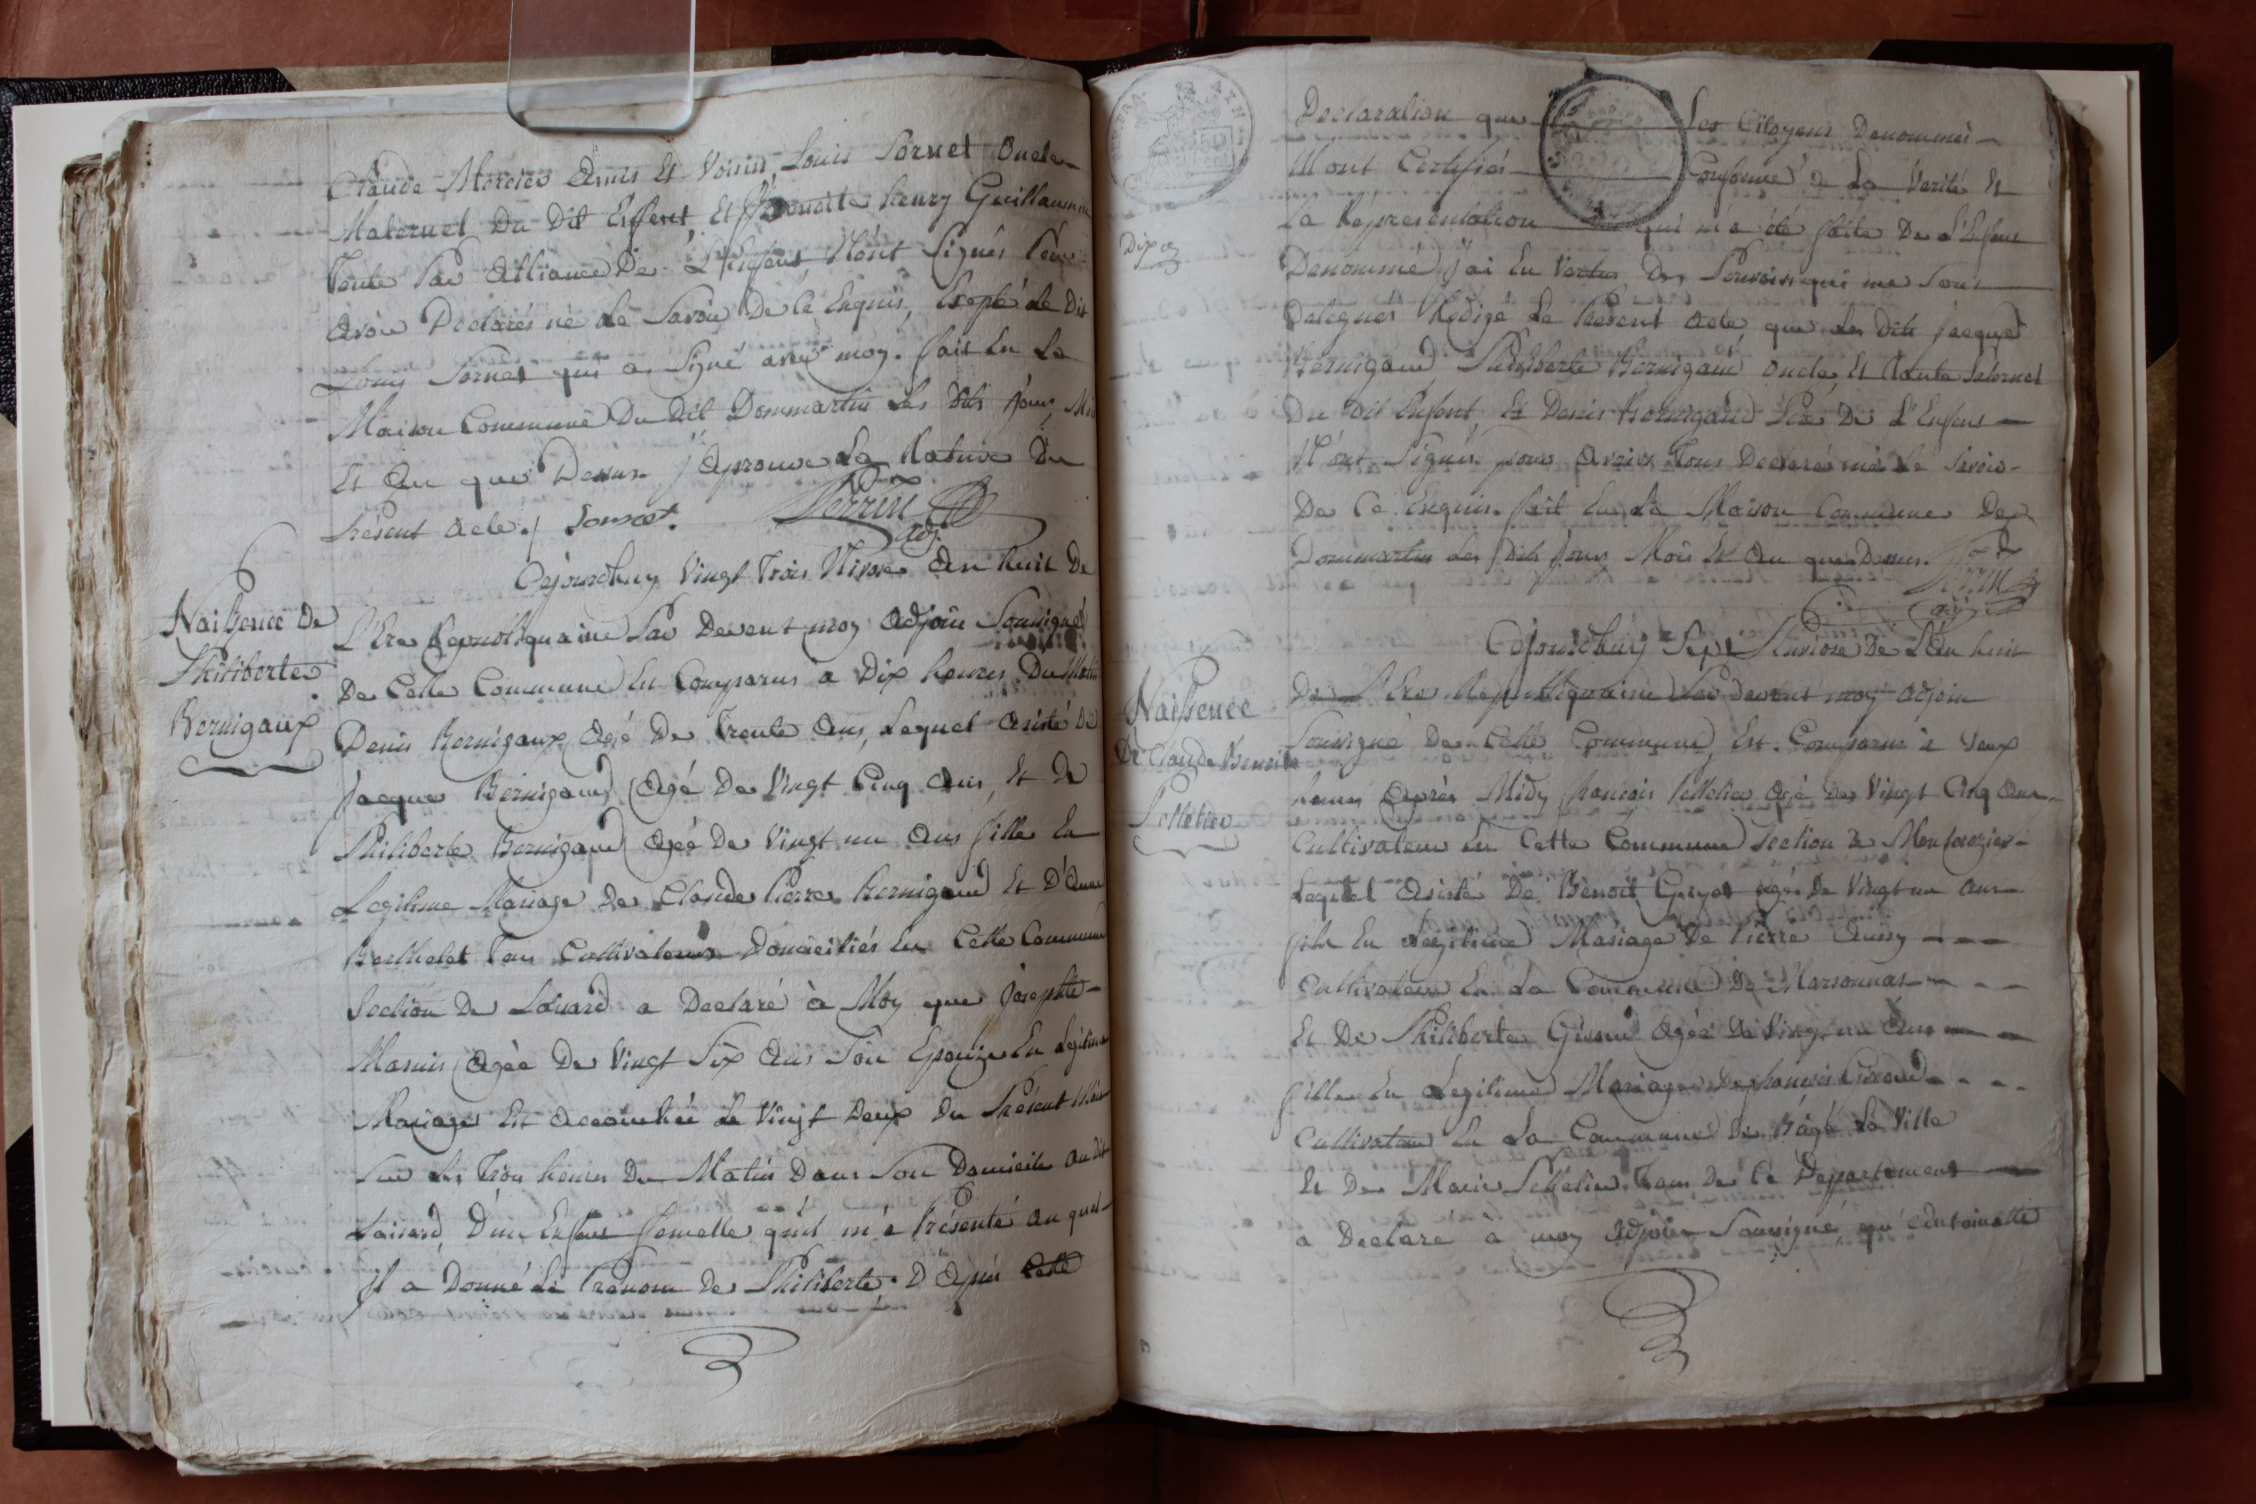 Claude Mercier Amis Et Voisin, Louis Sornet Oncle
Maternel Du Dit Enfent, Et Benoitte henry Guillaumin
Tente Par Alliance De L'Enfent N'ont Signés Pour
Avoir Declarés ne le Savoir De Ce Enquis, Exepté le Dit
Louis Sornet qui a Signé avec moy. fait En La
Maison Commune Du Dit Dommartin Les Dits Jour, Mois
Et An que Dessus. J'aprouve La Rature Du
Présent Acte./ Sornet. Perrin
adj.
Naissence De
Philiberte
Bernigaux
Cejourdhuy Vingt Trois Nivose An huit De
L'Ere Republiquaine Par Devent moy Adjoin Sousigné
De Cette Commune Est Comparus a Dix heures Du Matin
Denis Bernigaux Agé De Trente Ans, Lequel Asisté De
Jacque Bernigaud Agé De Vingt Cinq Ans, Et De
Philiberte Bernigaud Agée De Vingt un Ans fille En
Legitime Mariage De Claude Pierre Bernigaud Et D'Anne
Berthelet Tous Cultivateurs Domiciliés En Cette Commune
Section De Loirard a Declaré à Moy que Josephte
Marnis Agée De Vingt Six Ans Son Epouze En Legitime
Mariage Est Accouchée Le Vingt Deux Du Présent Mois
Sur Les Trois heures Du Matin Dans Son Domicile Au Dit
Loirard D'un Enfent femelle quil m'a Présenté Au quel
Il a Donné Le Prénom De Philiberte. D'Après Cette
Dix
Declaration que Les Citoyens Denommés
M'ont Certifiés Conforme à La Verité Et
La Représentation qui m'a été faite De L'Enfent
Denommé J'ai En Vertus Des Pouvoirs qui me Sont
Delegués Redigé Le Présent Acte que Les Dits Jacque
Bernigaud Philiberte Bernigaud Oncle, Et Tante Paternel
Du Dit Enfent, Et Denis Bernigaud Père De L'Enfent
N'ont Signés, pour Avoir Tous Declarés ne Le Savoir
De Ce Enquis. fait En La Maison Commune De
Dommartin Les Dits Jour Mois Et An que Dessus.
Perrin
adj.
Naissence
De Claude Benoite
Pelletier
Cejourdhuy Sept Pluviose De L'An huit
De L'Ere Republiquaine Par devent moy Adjoin
Sousigné De Cette Commune, Est Comparus à Deux
heures Après Midy françois Pelletier Agé De Vingt Cinq Ans
Cultivateur En Cette Commune Section De
Lequel Asisté De Benoit Guyot Agé De Vingt un Ans
fils En Legitime Mariage De Pierre
Cultivateur En La Commune De Marsonnas
Et De Philiberte Giroud Agée De Vingt un Ans
fille En Legitime Mariage De françois Giroud
Cultivateur En La Commune De Bâgé La Ville
Et De Marie Pelletier Tous De Ce Departement
a Declaré à moy Adjoin Sousigné, qu'Entoinette